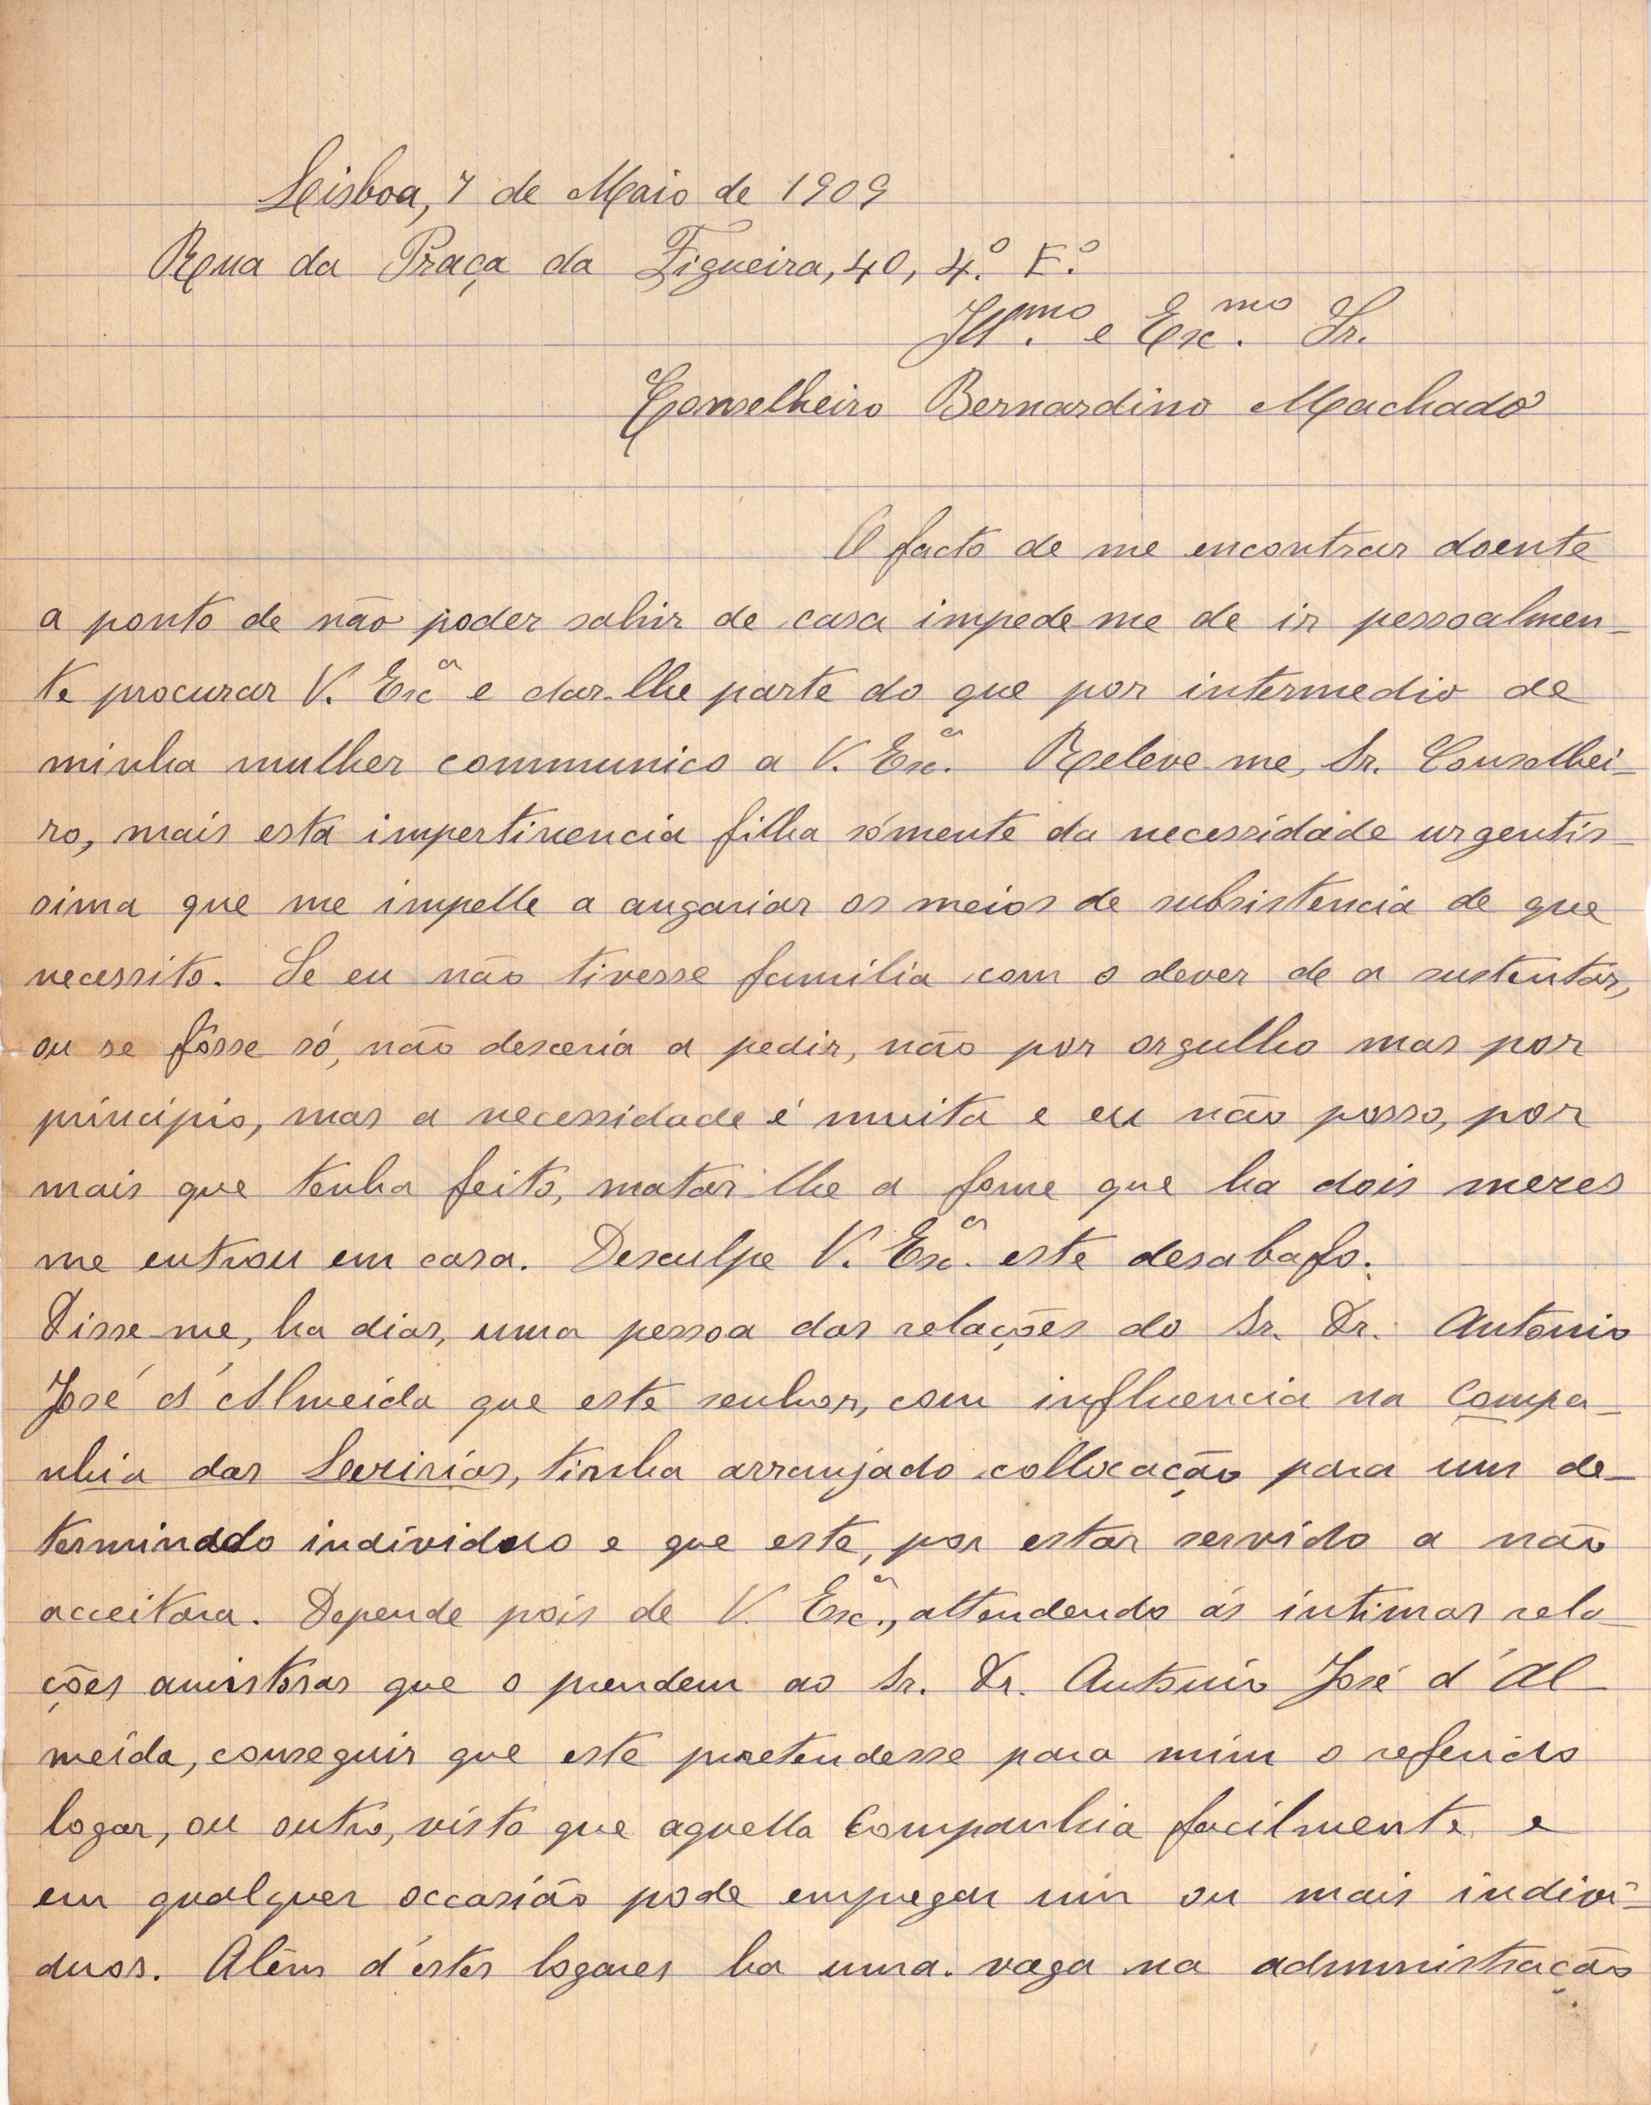 Lisboa, 7 de Maio de 1909
Rua da Praça da Figueira, 40, 4.º E.º
Ill.mo e Exc.mo Sr.
Conselheiro Bernardino Machado
O facto de me encontrar doente
a ponto de não poder sahir de casa impede-me de ir pessoalmen-
te procurar V. Exc.ª e dar-lhe parte do que por intermedio de
minha mulher communico a V. Exc.ª. Releve-me, Sr. Conselhei-
ro, mais esta impertinencia filha sómente da necessidade urgentis-
sima que me impelle a angariar os meios de subsistencia de que
necessito. Se eu não tivesse familia com o dever de a sustentar,
ou se fôsse só, não desceria a pedir, não por orgulho mas por
principio, mas a necessidade é muita e eu não posso, por
mais que tenha feito, matar-lhe a fome que ha dois mezes
me entrou em casa. Desculpe V. Exc.ª este desabafo.
Disse-me, ha dias, uma pessoa das relações do Sr. Dr. Antonio
José d'Almeida que este senhor, com influencia na Compa-
nhia das Lezirias, tinha arranjado collocação para um de-
terminado individuo e que este, por estar servido a não
acceitára. Depende pois de V. Exc.ª, attendendo ás intimas rela-
ções amistosas que o prendem ao Sr. Dr. Antonio José d'Al-
meida, conseguir que este pretendesse para mim o referido
logar, ou outro, visto que aquella Companhia facilmente e
em qualquer occasião póde empregar um ou mais indivi-
duos. Além d'estes logares ha uma vaga na administração